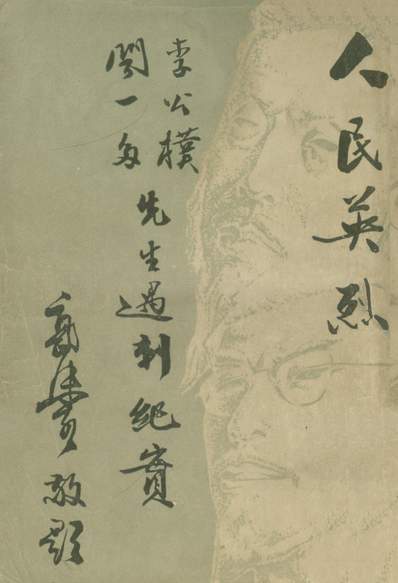 人民英烈
李公樸
聞一多
先生遇刺紀實
郭沫若敬題